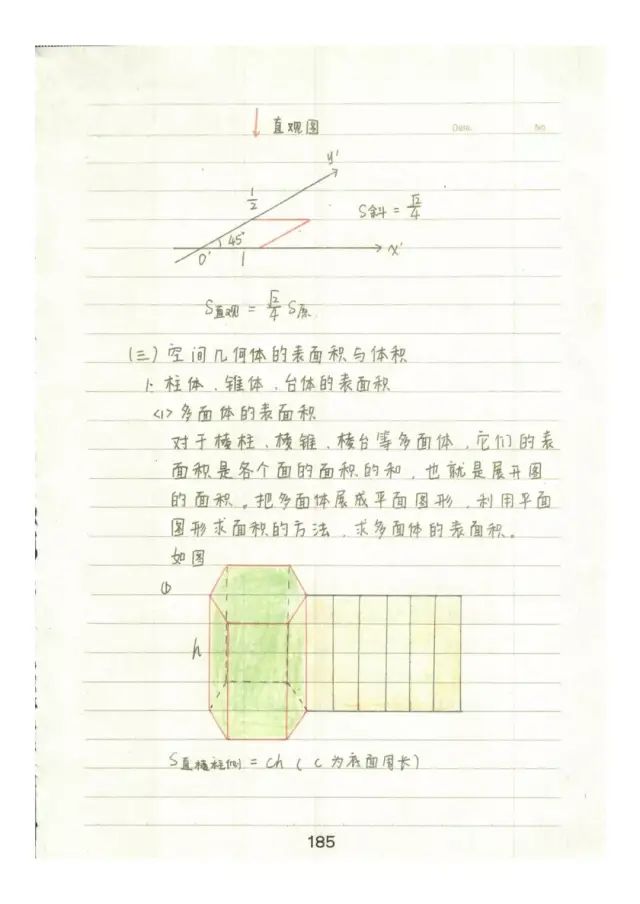 直观图
Date.
No
y'
1/2
S斜 = √2/4
45°
O'
1
x'
S直观 = √2/4 S原.
(三) 空间几何体的表面积与体积
1. 柱体、锥体、台体的表面积
<1> 多面体的表面积
对于棱柱、棱锥、棱台等多面体，它们的表
面积是各个面的面积的和，也就是展开图
的面积。把多面体展成平面图形，利用平面
图形求面积的方法，求多面体的表面积。
如图
①
h
S直棱柱侧 = ch ( c 为底面周长)
185